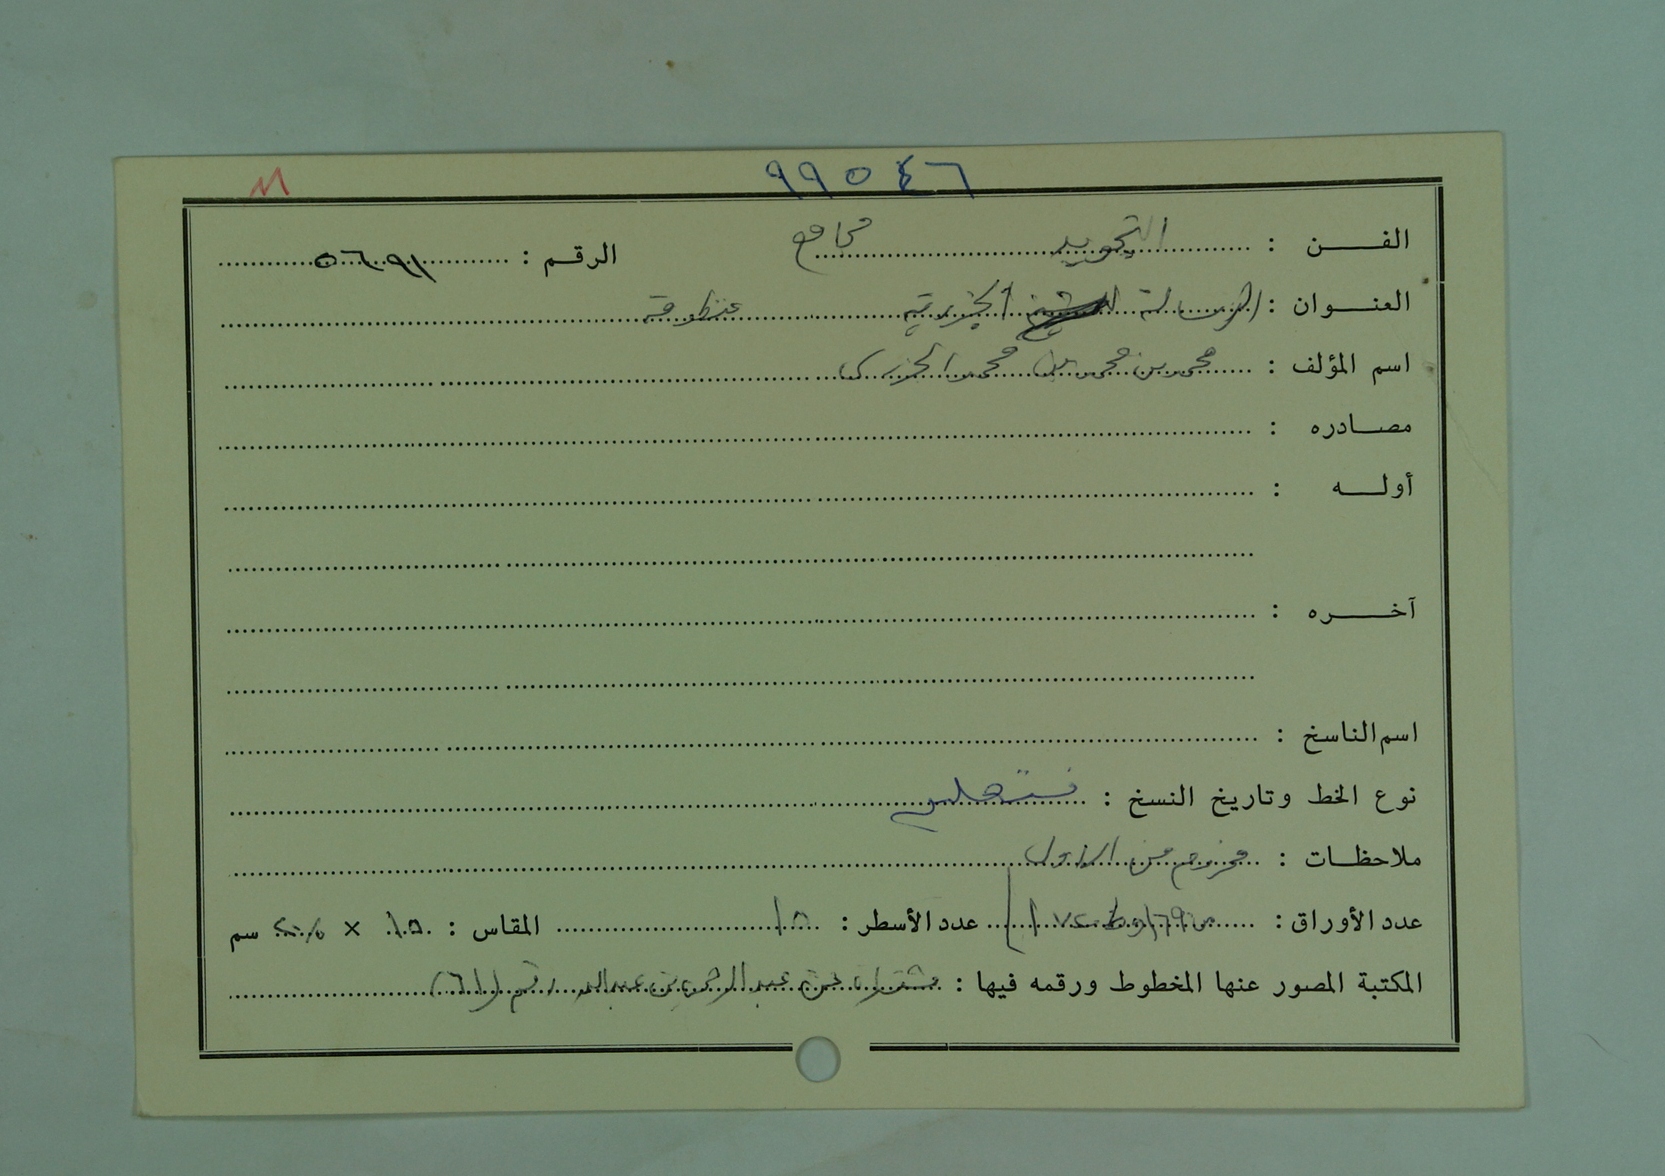 ٩٩٥٤٦
الفـــن : التجويد مجامع الرقـم : ٥٦٩١
العنــوان : الرسالة الجزرية منظومة
اسم المؤلف : محمد بن محمد بن محمد الجزري
مصــادره :
أولـــه :
آخـــره :
اسم الناسخ :
نوع الخط وتاريخ النسخ :
ملاحظــات : مخروم من الأول
عدد الأوراق : عدد الأسطر : ١٥ المقاس : ١٥ × سم
المكتبة المصور عنها المخطوط ورقمه فيها : عبد الرحمن بن عبدالله رقم (٦١)